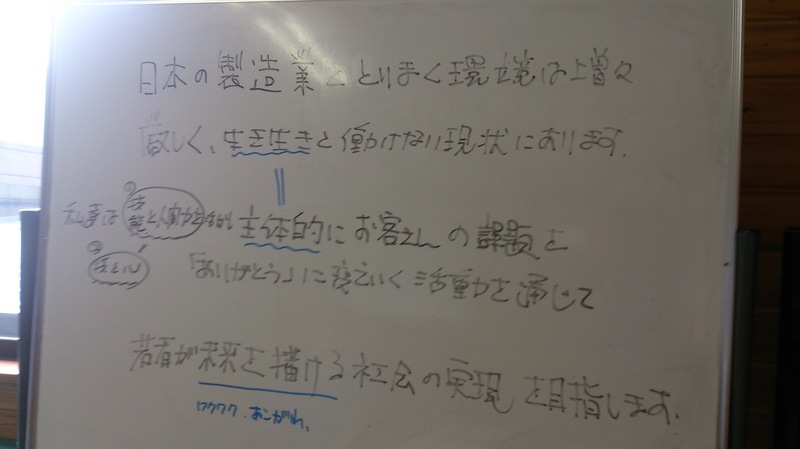 日本の製造業をとりまく環境は増々
厳しく、生き生きと働けない現状にあります。
||
私事は 技能と人間力を活かし 主体的にお客さんの課題を
「ありがとう」に変えていく活動を通じて
若者が未来を描ける社会の実現を目指します。
ワクワク、あこがれ。